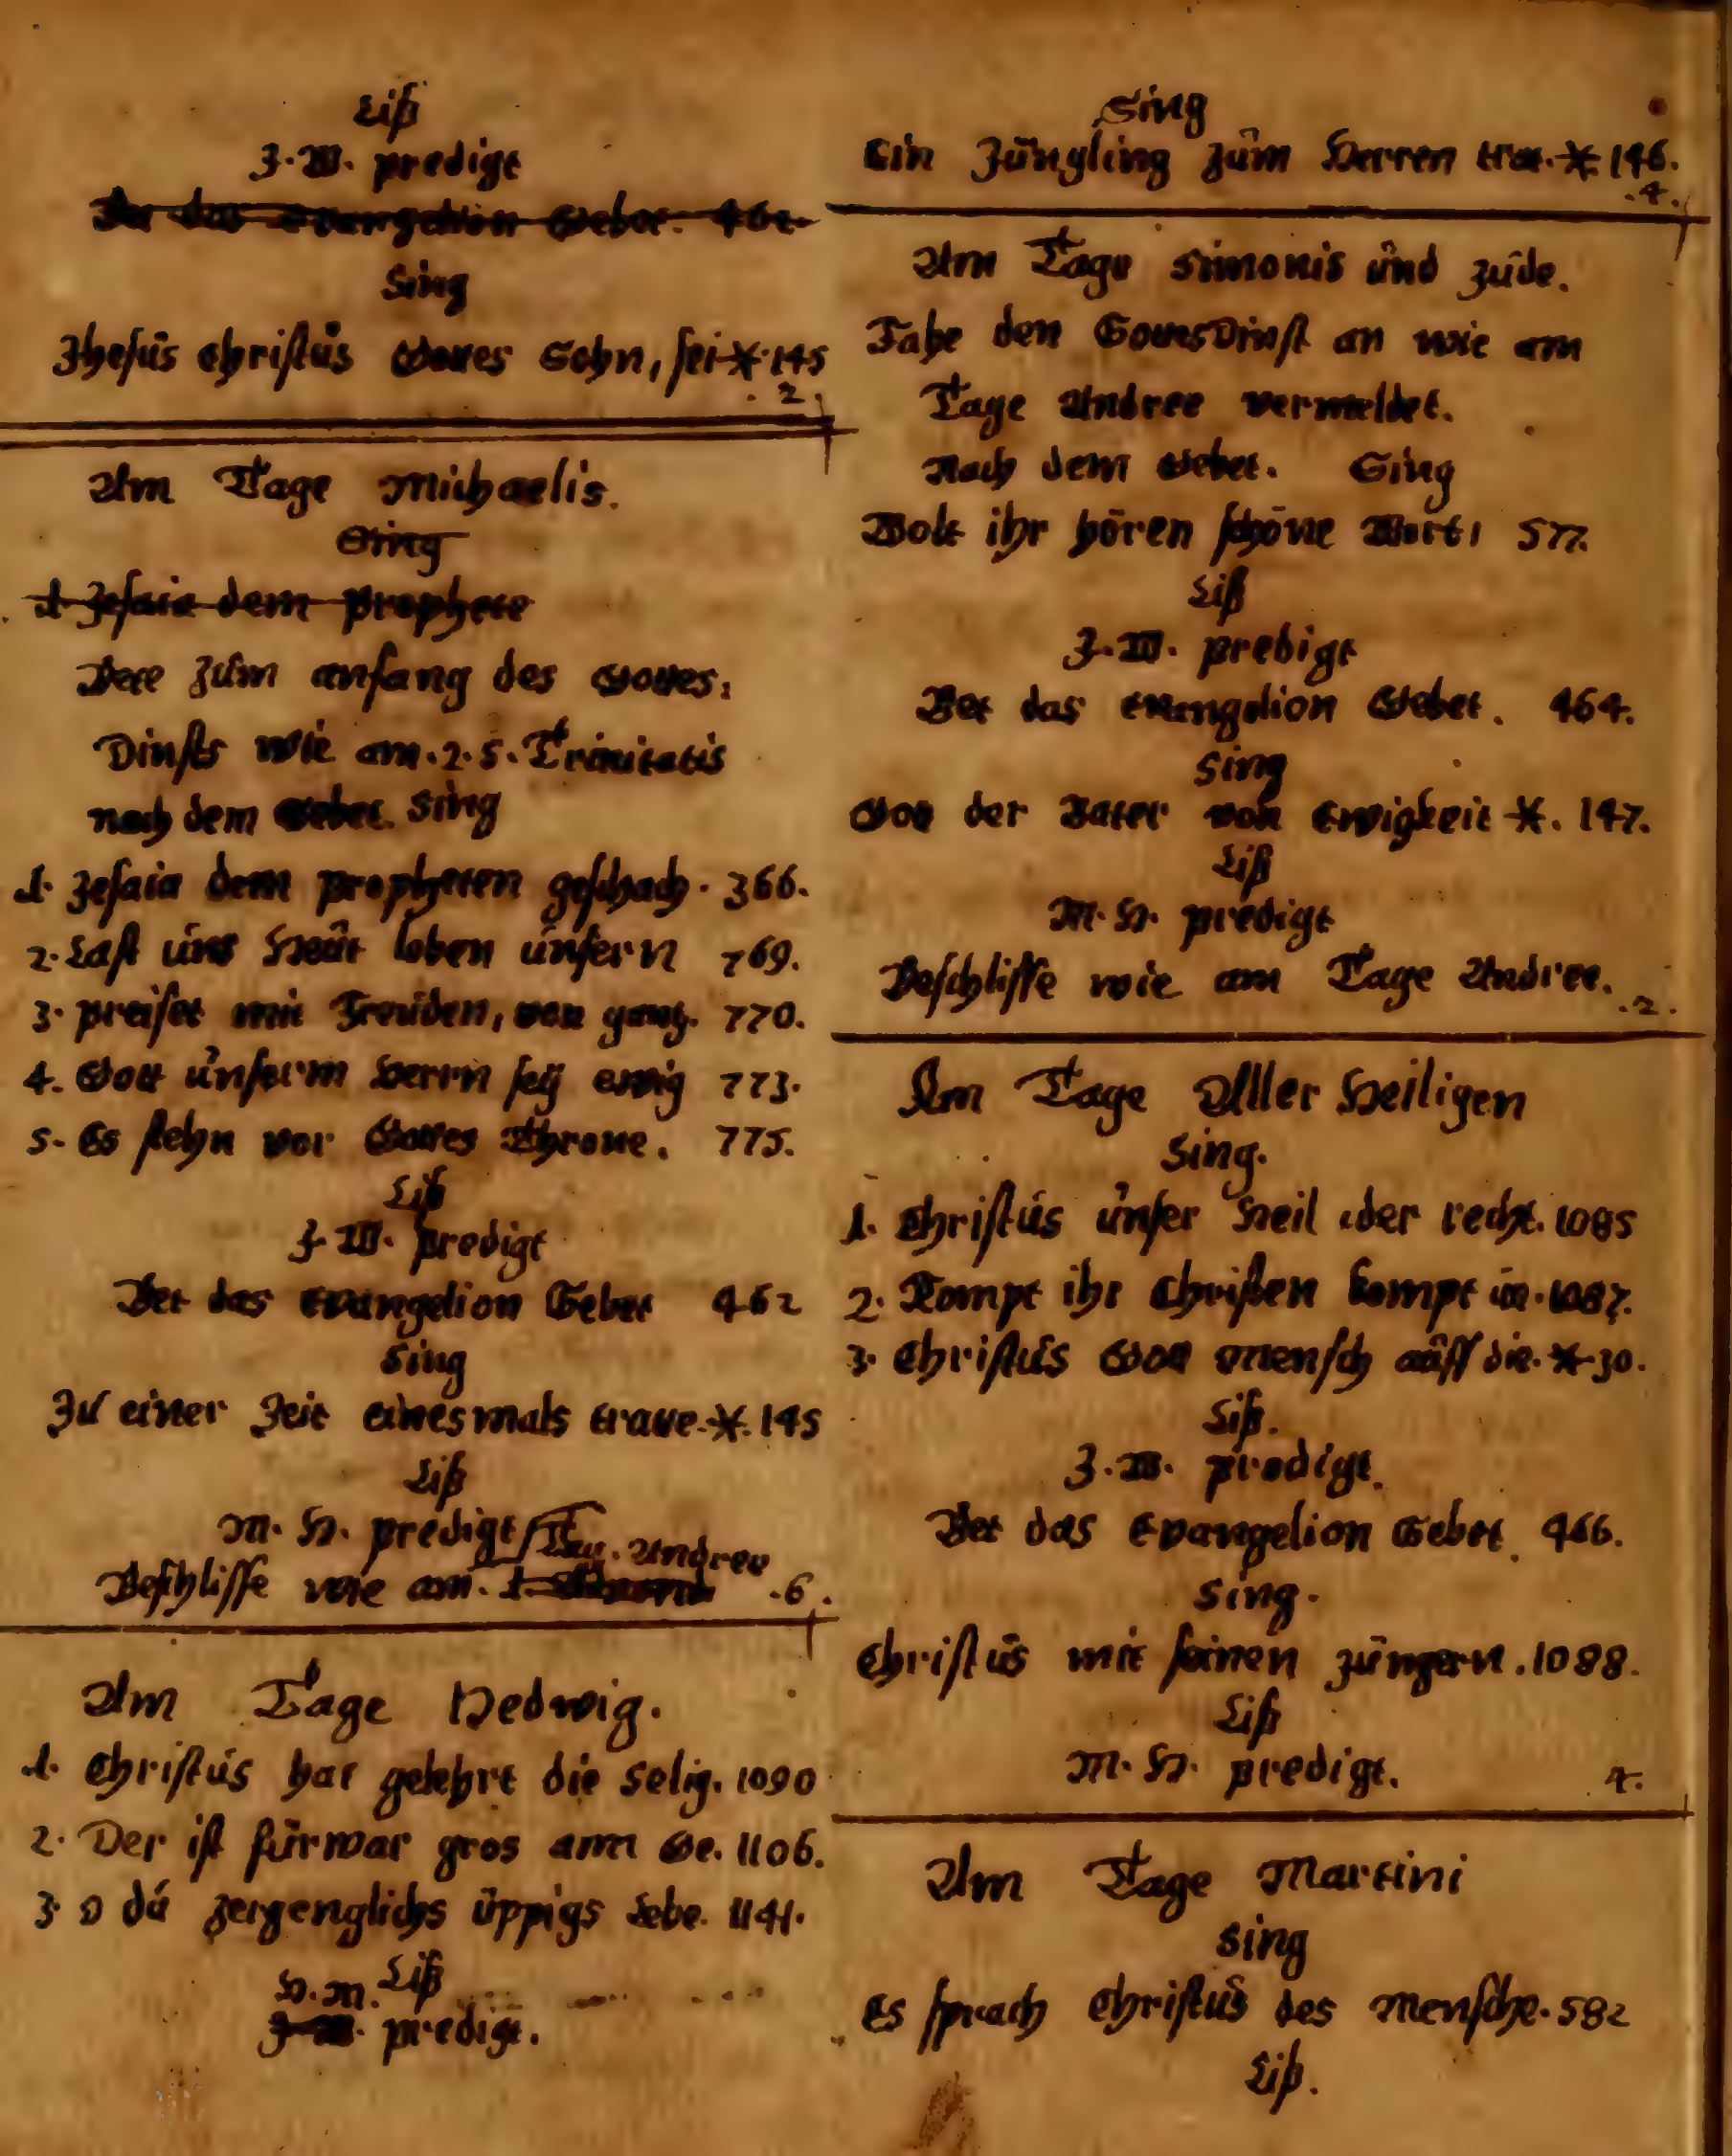 Liß
J. W. predigt
Bet das Evangelion Gebet. 461.
Sing
Jhesus Christus Gottes Sohn, sei * 145
.2.
Am Tage Michaelis.
Sing
1. Jesaia dem prophete
Bete zum anfang des Gottes,
Dinsts wie am. 2. S. Trinitatis
nach dem Gebet. Sing
1. Jesaia dem propheten geschach. 366.
2. Last uns Heut loben unsern 769.
3. preiset mit Freuden, von gantz. 770.
4. Gott unserm Herrn seÿ ewig 773.
5. Es stehn vor Gottes Throne. 775.
Liß
J. W. predigt
Bet das Evangelion Gebet 462
Sing
Zu einer Zeit einesmals tratte. *. 145
Liß
M. H. predigt / Tag. Andree
Beschlisse wie am. 1. .6.
Am Tage Hedwig.
1. Christus hat gelehrt die selig. 1090
2. Der ist fürwar gros ann Ge. 1106.
3 O du zergenglichs üppigs Lebe. 1141.
H. M. Liß
J. W. predigt.
Sing
Ein Jüngling zum Herren trat. * 146.
.4.
Am Tage Simonis und Jude.
Fahe den GottesDinst an wie am
Tage Andree vermeldet.
Nach dem Gebet. Sing
Wolt ihr hören schöne Wort, 577.
Liß
J. W. predigt
Bet das Evangelion Gebet. 464.
Sing
Gott der Vater von Ewigkeit *. 147.
Liß
M. H. predigt
Beschlisse wie am Tage Andree. .2.
Am Tage Aller Heiligen
Sing.
1. Christus unser Heil der recht. 1085
2. Kompt ihr Christen kompt in. 1087.
3. Christus Gott mensch auff die. * 30.
Liß.
J. W. predigt.
Bet das Evangelion Gebet. 466.
Sing.
Christus mit seinen Jüngern. 1088.
Liß
M. H. predigt. 4.
Am Tage Martini
Sing
Es sprach Christus des Mensche. 582
Liß.